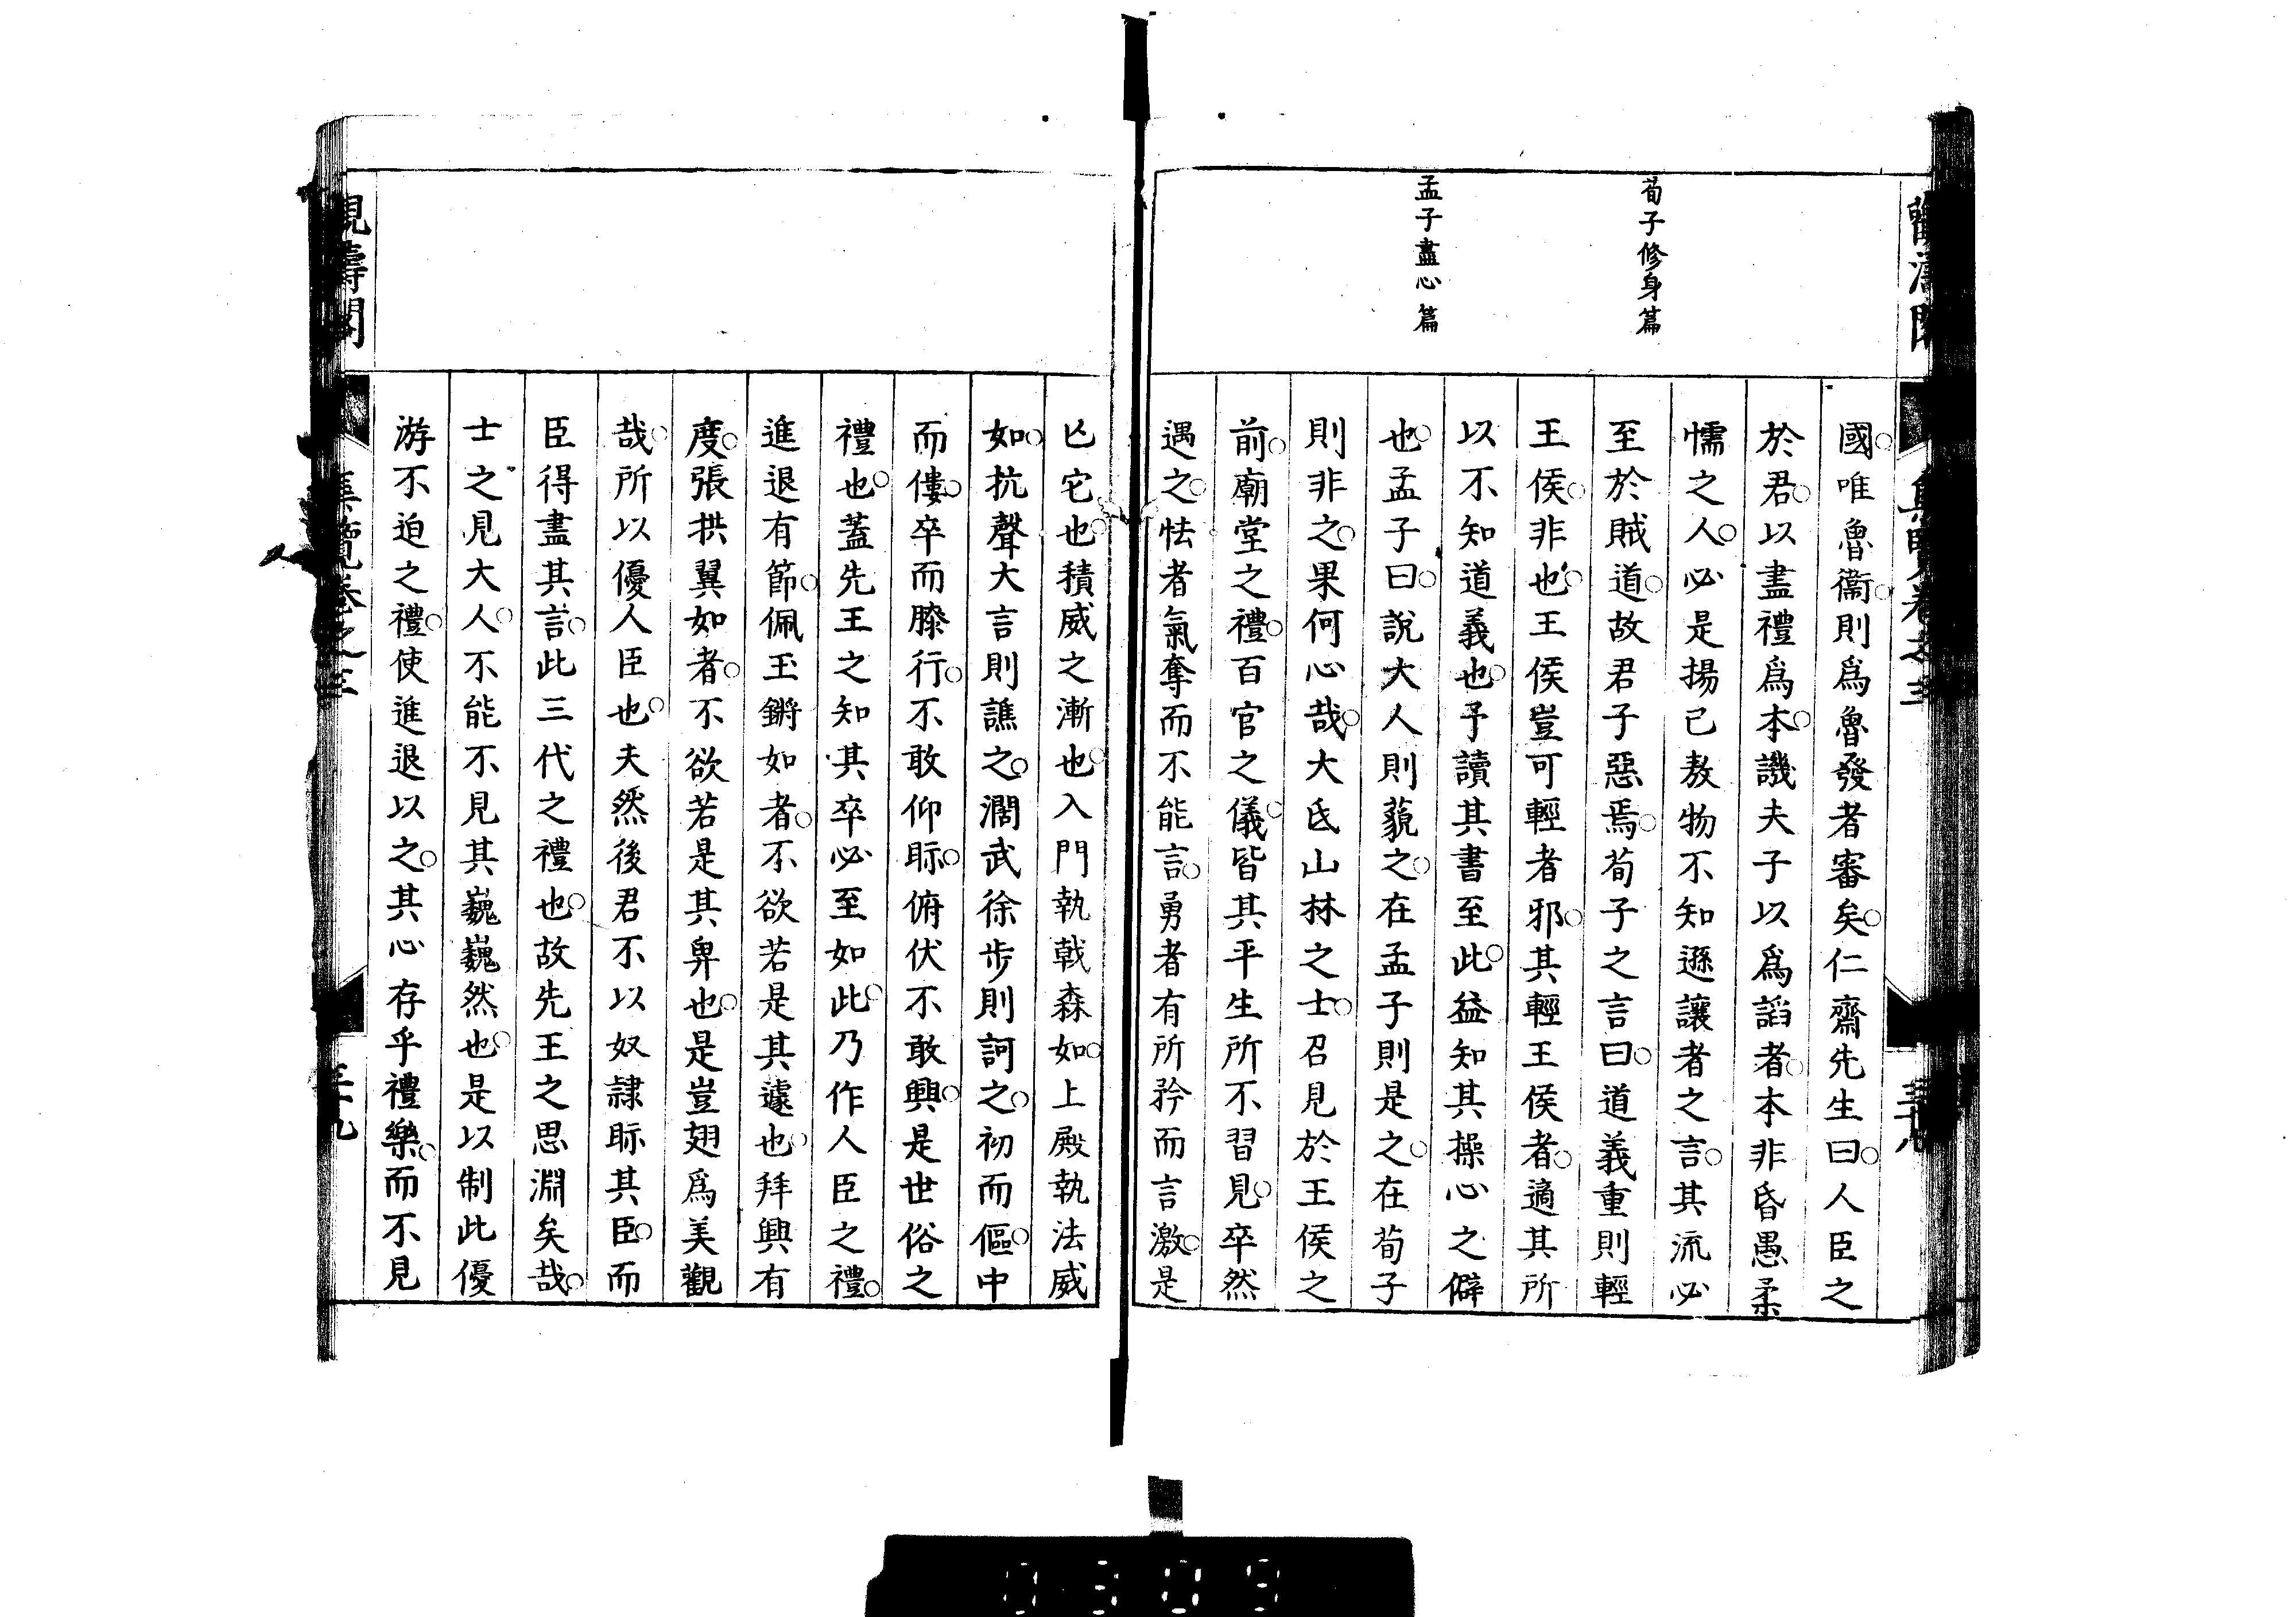 荀子修身篇
孟子盡心篇
國。唯魯衞。則爲魯發者審矣。仁齋先生曰。人臣之
於君。以盡禮爲本。譏夫子以爲謟者。本非昏愚柔
懦之人。必是揚己敖物不知遜讓者之言。其流必
至於賊道。故君子惡焉。荀子之言曰。道義重則輕
王侯。非也。王侯豈可輕者邪。其輕王侯者。適其所
以不知道義也。予讀其書至此。益知其操心之僻
也。孟子曰。說大人則藐之。在孟子則是之。在荀子
則非之。果何心哉。大氐山林之士。召見於王侯之
前。廟堂之禮。百官之儀。皆其平生所不習見。卒然
遇之。怯者氣奪而不能言。勇者有所矜而言激。是
亾它也。積威之漸也。入門執戟森如。上殿執法威
如。抗聲大言則譙之。濶武徐步則訶之。初而傴。中
而僂。卒而膝行。不敢仰眎。俯伏不敢興。是世俗之
禮也。蓋先王之知其卒必至如此。乃作人臣之禮。
進退有節。佩玉鏘如者。不欲若是其遽也。拜興有
度。張拱翼如者。不欲若是其卑也。是豈翅爲美觀
哉。所以優人臣也。夫然後君不以奴隷眎其臣。而
臣得盡其言。此三代之禮也。故先王之思淵矣哉。
士之見大人。不能不見其巍巍然也。是以制此優
游不迫之禮。使進退以之。其心存乎禮樂。而不見